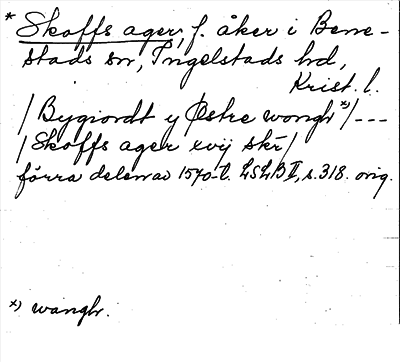 * Skoffs ager, f. åker i Bene-
stads sn, Ingelstads hd,
Krist. l.
/ Bygiordt y Østre wongh *) / ---
/ Skoffs ager xvij skr̄ /
förra delen av 1570-t. LSLB II, s. 318. orig.
*) wanghr.